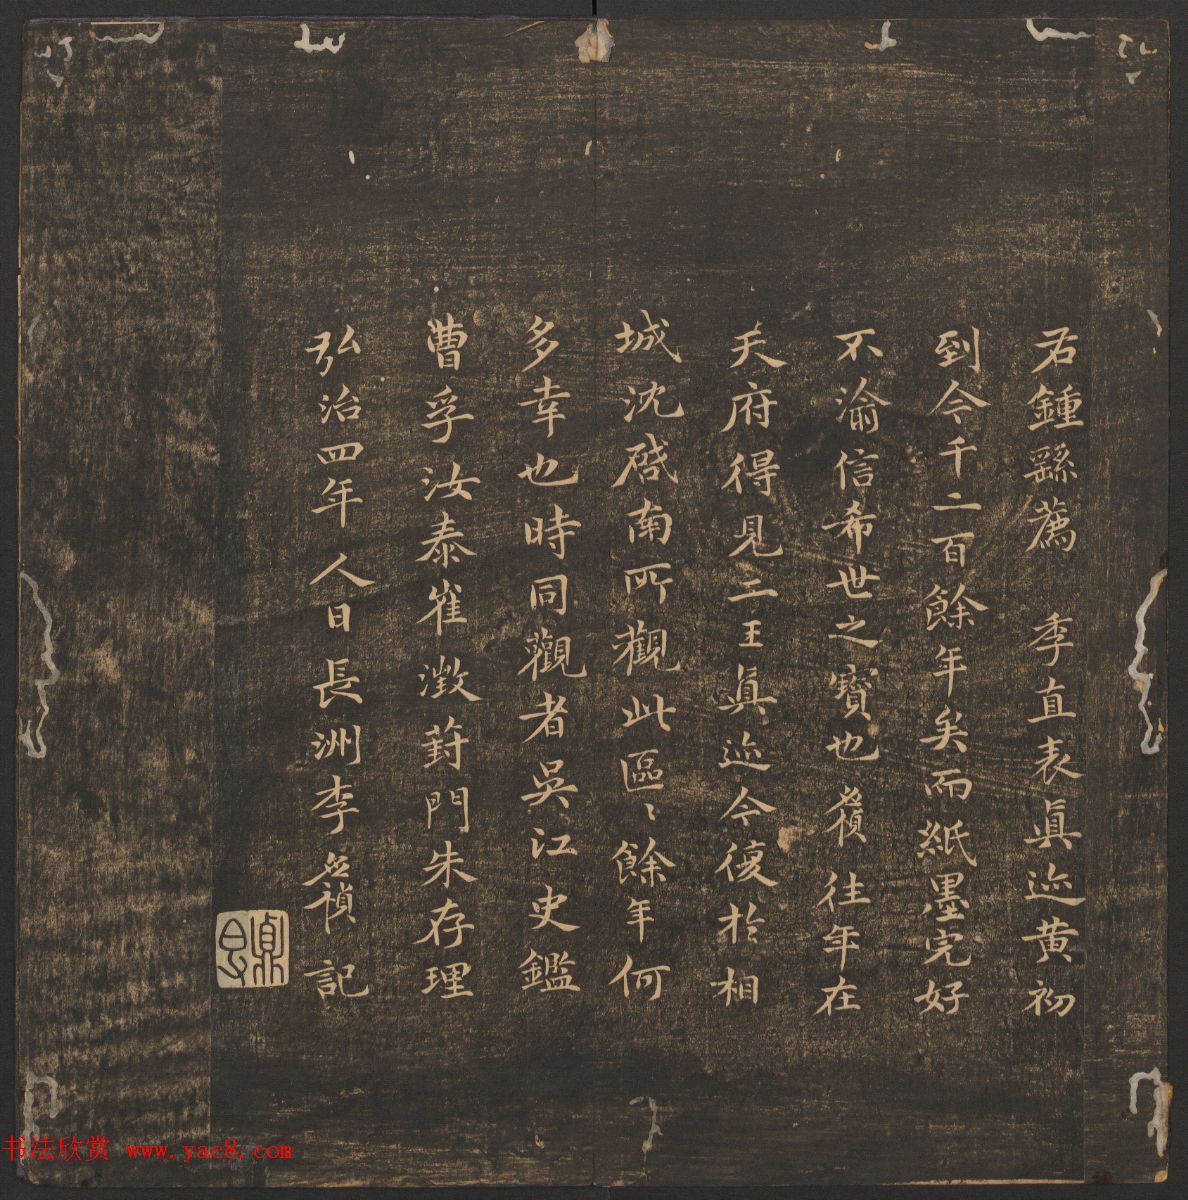 右鍾繇薦 季直表眞迹黄初
到今千二百餘年矣而紙墨完好
不渝信希世之寶也應禎往年在
天府得見二王眞迹今復於相
城沈啓南所觀此區〻餘年何
多幸也時同觀者吳江史鑑
曹孚汝泰崔澂葑門朱存理
弘治四年人日長洲李應禎記
书法欣赏 www.yac8.com